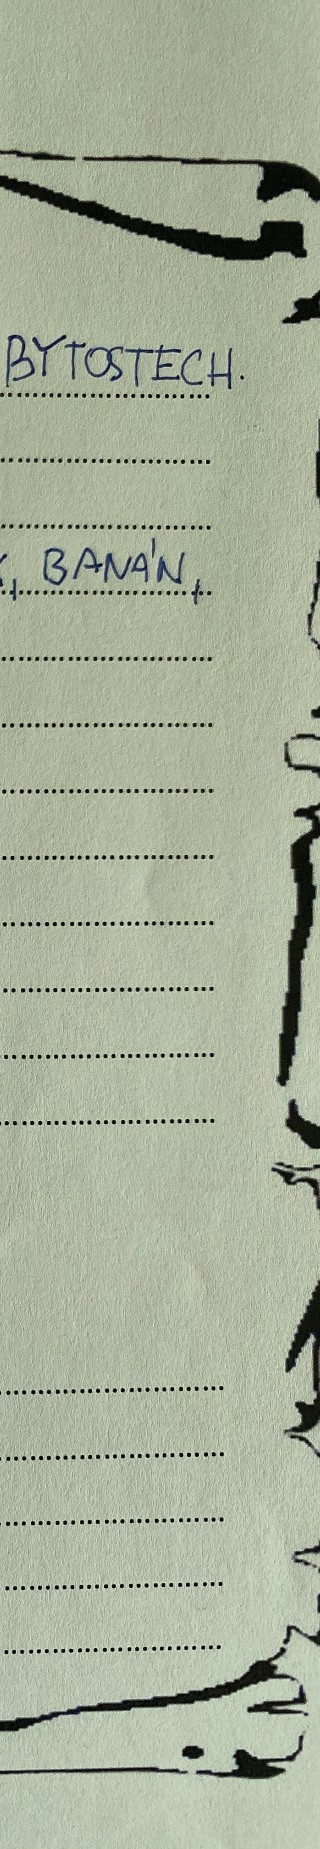 BYTOSTECH.
, BANÁN,